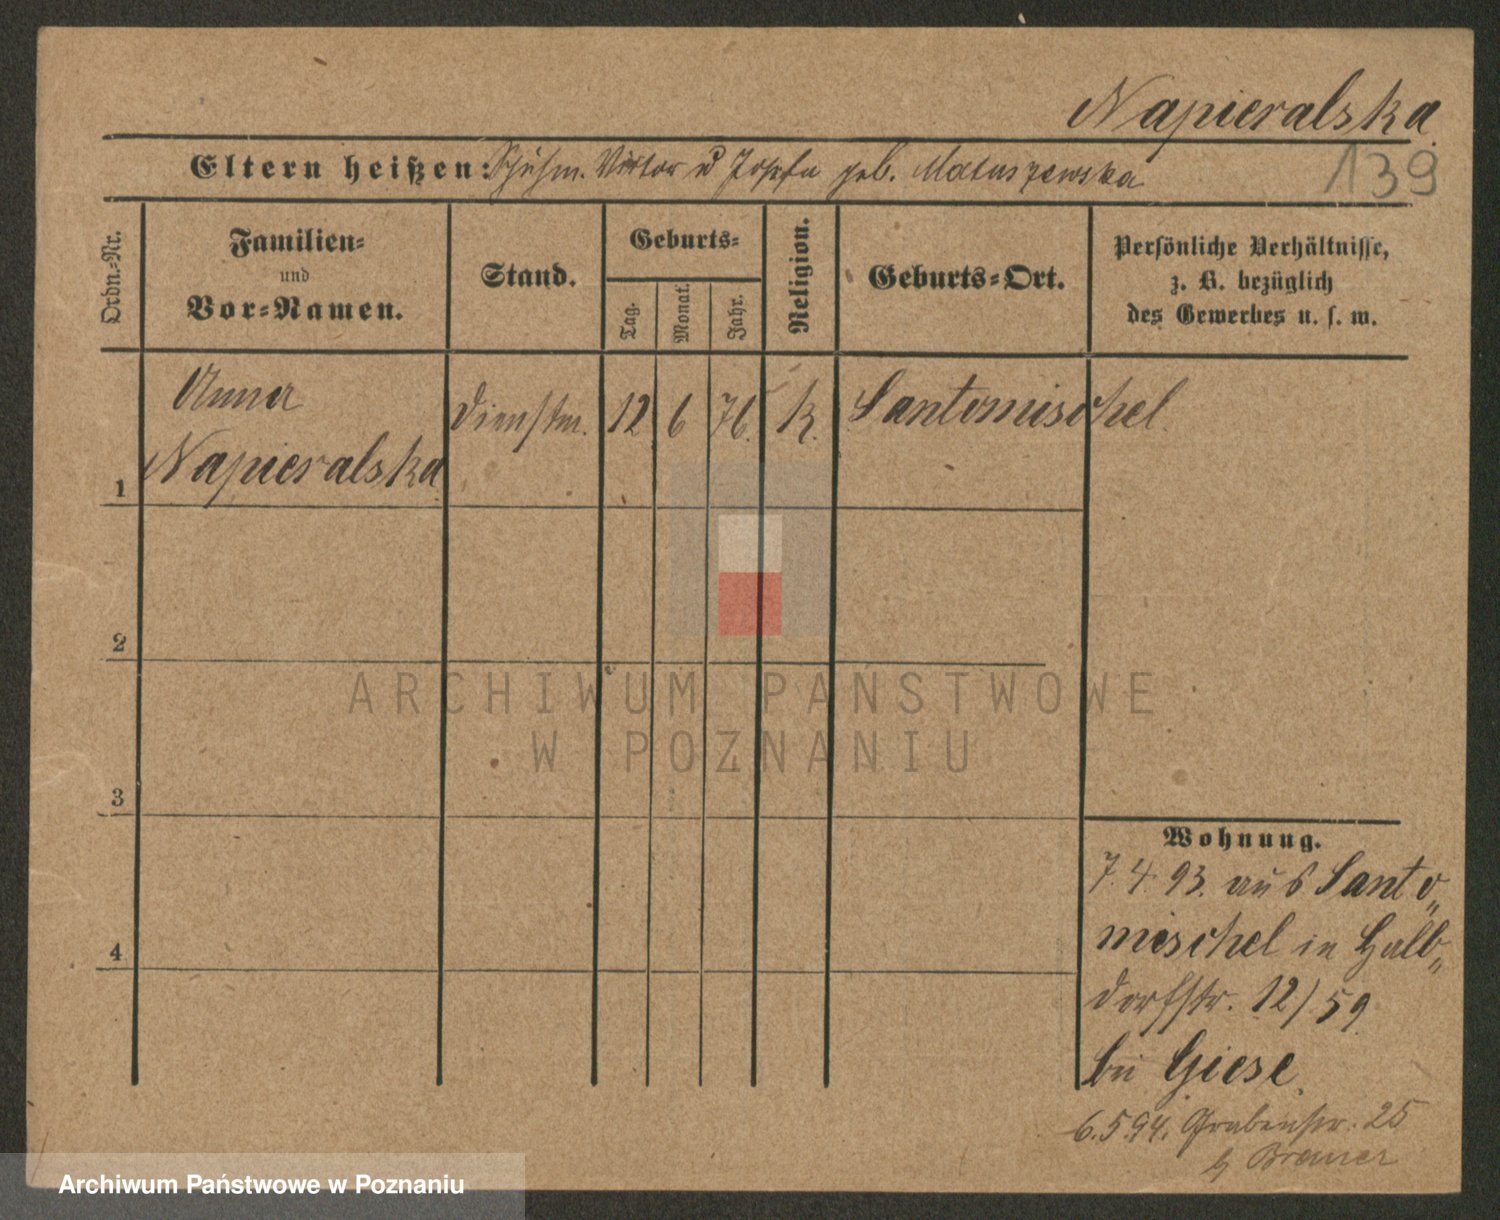 Napieralska
139
Eltern heißen: Schuhm. Viktor u Josefa geb. Matuszewska
Ordn.-Nr.
Familien-
und
Vor-Namen.
Stand.
Geburts-
Tag.
Monat.
Jahr.
Religion.
Geburts-Ort.
Persönliche Verhältnisse,
z. B. bezüglich
des Gewerbes u. s. w.
Anna Dienstm. 12 6 76. K. Santomischel.
Napieralska
1
2
ARCHIWUM PAŃSTWOWE
W POZNANIU
3
Wohnung.
7. 4. 93. aus Santo„
mischel in Halb„
dorfstr. 12/59
bei Giese.
4
6.5.94. Grabenstr. 25
b
Archiwum Państwowe w Poznaniu